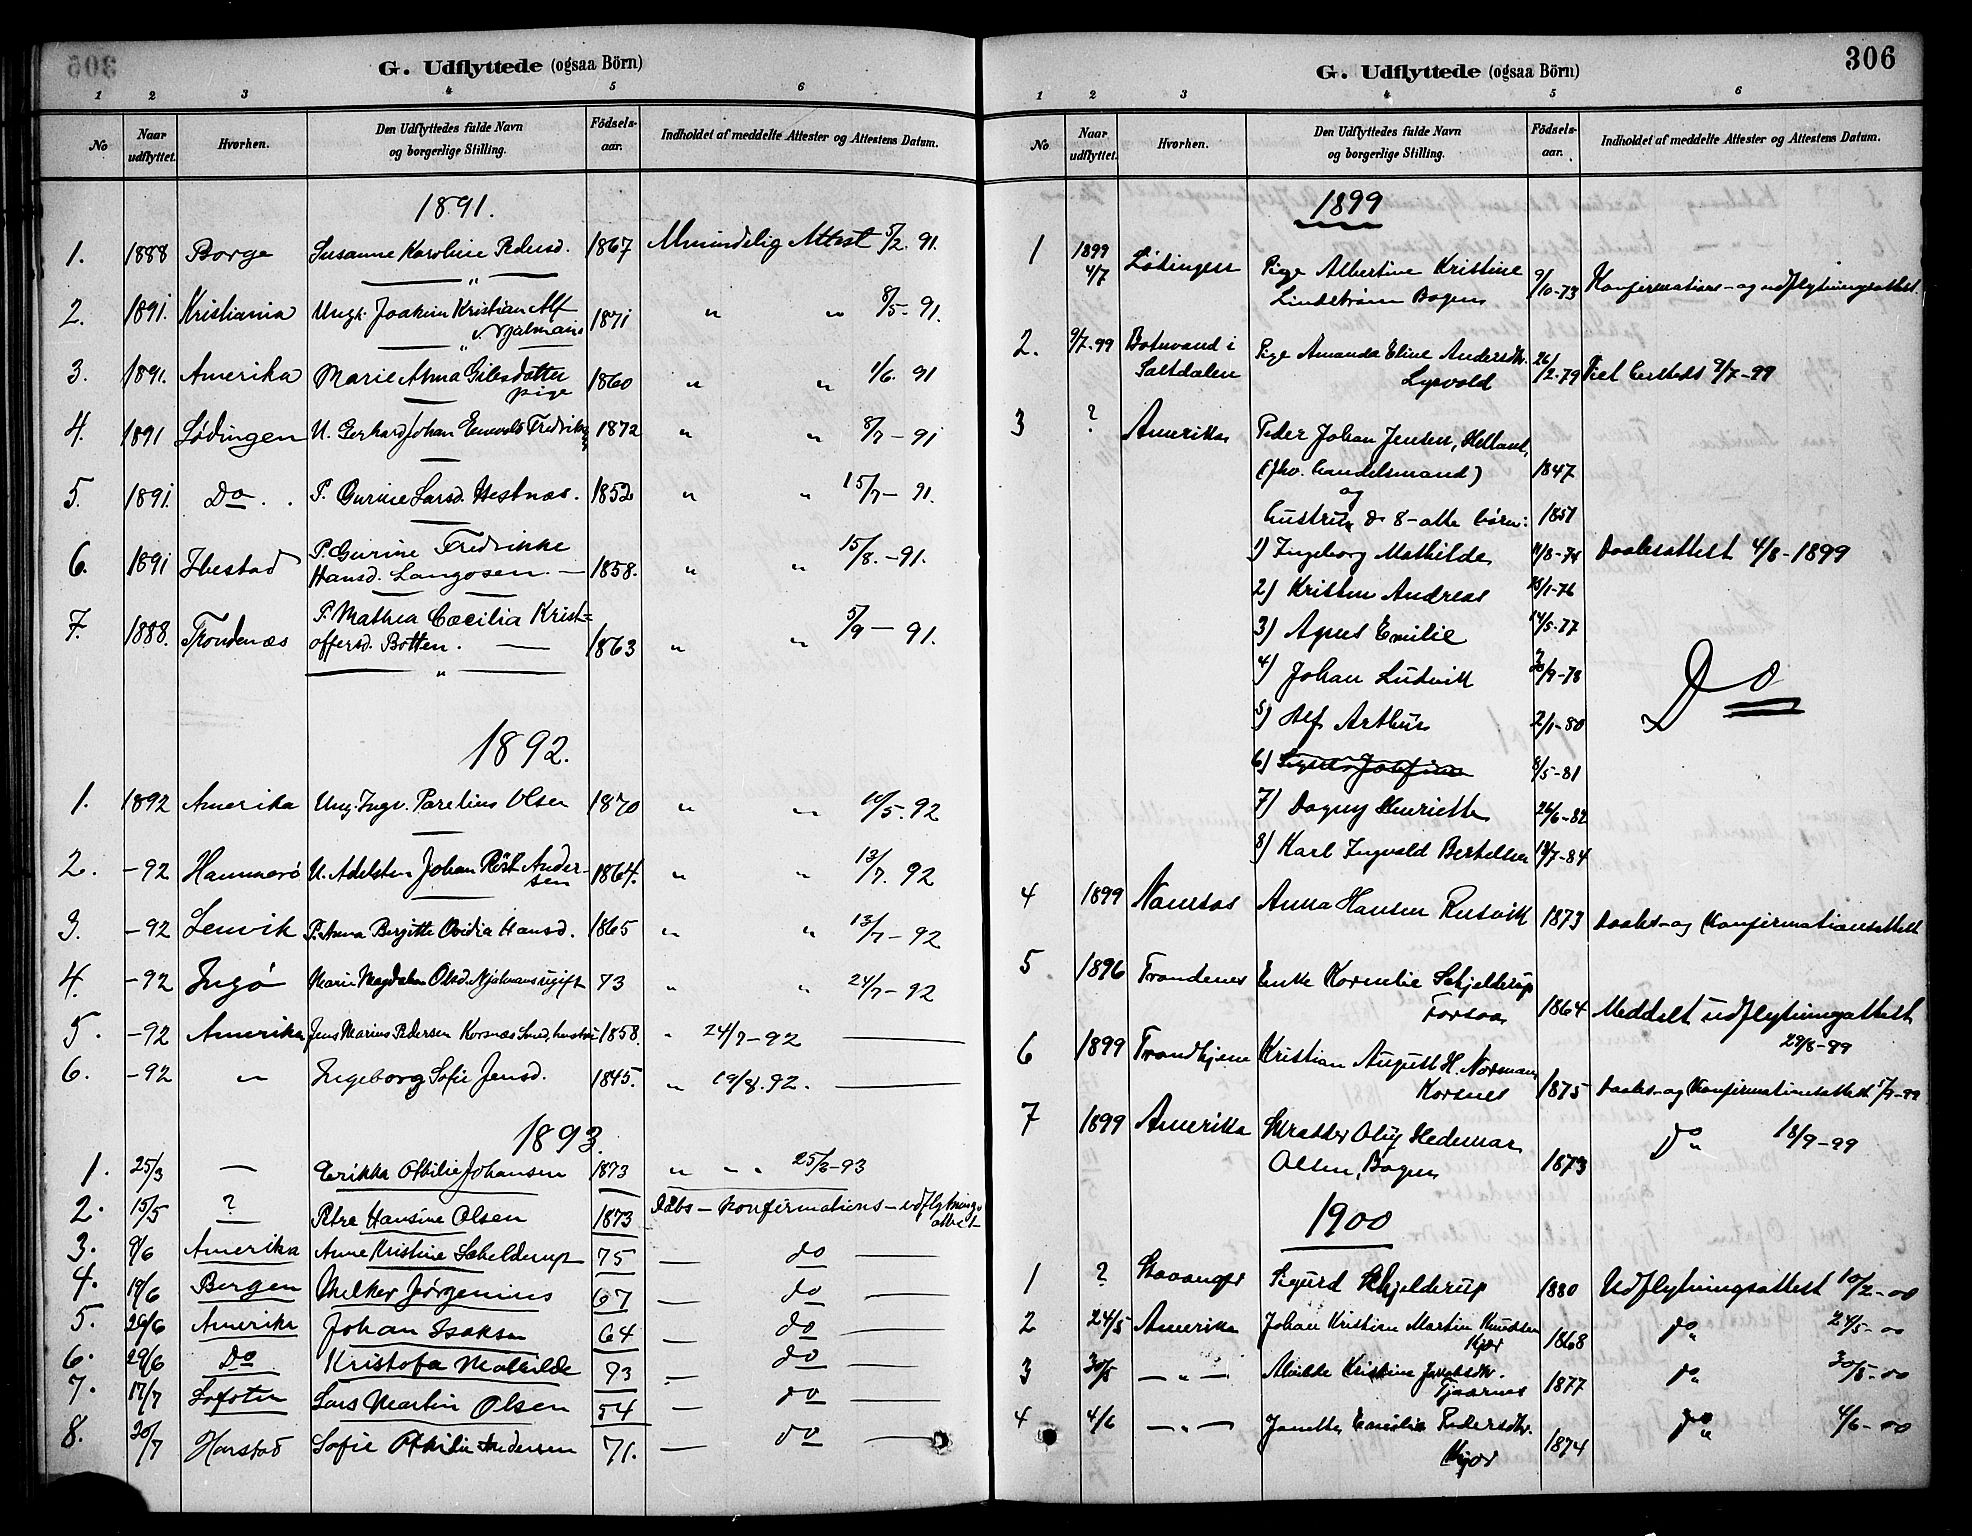 305
G. Udflyttede (ogsaa Börn)
1 2 3 4 5 6
No Naar udflyttet. Hvorhen. Den Udflyttedes fulde Navn og borgerlige Stilling. Födsels-aar. Indholdet af meddelte Attester og Attestens Datum.
1891.
1. 1888 Borge Susanne Karoline Pedersd. 1867 Almindelig Attest 5/2. 91.
2. 1891. Kristiania Ungk. Joakim Kristian Alf 1871 " " 8/5-91.
Njalmans
3. 1891. Amerika Marie Anna Gilesdatter 1860 " " 1/6. 91
pige
4. 1891 Lödingen U. Gerhard Johan Fredriks 1872 " " 8/7-91
5. 1891. Do. P. Gurine Larsd. Hestnæs. 1852 " " 15/7-91.
6. 1891 Ibestad P. Gurine Fredrikke
Hansd. Langosen. 1858. " " 15/8.-91.
7. 1888. Trondenæs P. Mathea Cæcilia Krist-
offersd. Botten. 1863 " " 5/9-91.
1892.
1. 1892 Amerika Ung. Ingv. Parelius Olsen 1870 " " 10/5. 92
2. -92 Hammerö U. Adelsten Johan Röst Ander- 1864. " " 13/7. 92
sen
3. -92 Lenvik P. Anna Bergitte Ovidia Hansd. 1865 " " 13/7-92
4. -92 Ingö Marie Magdalena Olsd. Njalmans ugift 73 " " 24/7-92
5. -92 Amerika Jens Marius Pedersen Korsnæs 1858. " 24/7-92
6. -92 " Ingeborg Sofie Jensd. 1845. " 19/8.92.
1893.
1. 25/3 — Erikka Othilie Johansen 1873 " " " 25/3-93
2. 15/5 ? Petre Hansine Olsen 1873 Dåbs-konfirmations-udflytnings
attest
3. 9/6 Amerika Anne Kristine Schelderup 75 — do
4. 19/6 Bergen Melker Jörgenius 67 — do
5. 29/6 Amerika Johan Isaksen 64 — do
6. 29/6 Do Kristofa Mathilde 93 — do
7. 17/7 Lofoten Lars Martin Olsen 54 — do
8. 20/7 Harstad Sofie Othilie Andersen 71. — do
306
G. Udflyttede (ogsaa Börn)
1 2 3 4 5 6
No Naar udflyttet. Hvorhen. Den Udflyttedes fulde Navn og borgerlige Stilling. Födsels-aar. Indholdet af meddelte Attester og Attestens Datum.
1899
1 1899 4/7 Lödingen Pige Albertine Kristine
Lindström Bogen 9/10-73 Konfirmations-og udflytningsattest.
2. 9/7-99 Botnvand i Saltdalen Pige Amanda Eline Andersdtr. 26/2-79
Lysvold 9/7-99
3 ? Amerika Peder Johan Jensen, Helland,
(fhv. handelsmand) 1847
og
hustru & 8-otte börn: 1851
1) Ingeborg Mathilde 11/8-74 Daabsattest 4/8-1899
2) Kristen Andreas 15/1-76
3) Agnes Emilie 14/5-77
4) Johan Ludvik 20/9-78 Do
5) Alf Arthur 2/1-80
6) Josefine 8/5-81
7) Dagny Henriette 26/6-82
8) Karl Ingvald Bertelius 19/7-84
4 1899 Namsos Anna Hansen Rusvik 1873 Daabs-og Konfirmationsattest
5 1896 Trondenes Enke Kornelie Schjelderup
Forsaa 1864 Meddelt udflytningsattest
29/8-99
6 1899 Trondhjem Kristian August H. Norman,
Korsnes 1875 Daabs-og Konfirmationsattest 5/9-99
7 1899 Amerika Skrædder Oluf Hedemar
Olsen, Bogen 1873 Do 18/9-99
1900
1 ? Stavanger Sigurd Schjelderup 1880 Udflytningsattest 10/2-00
2 24/5 Amerika Johan Kristian Martin Knudsen
Kjær 1868 do 24/5-00
3 30/5 — " — Alvilde Kristine Jakobsdtr.
Tjaarnes 1877 do 30/5-00
4 4/6 — " — Janette Emilie Pedersdtr.
Kjær 1874 do 4/6-00